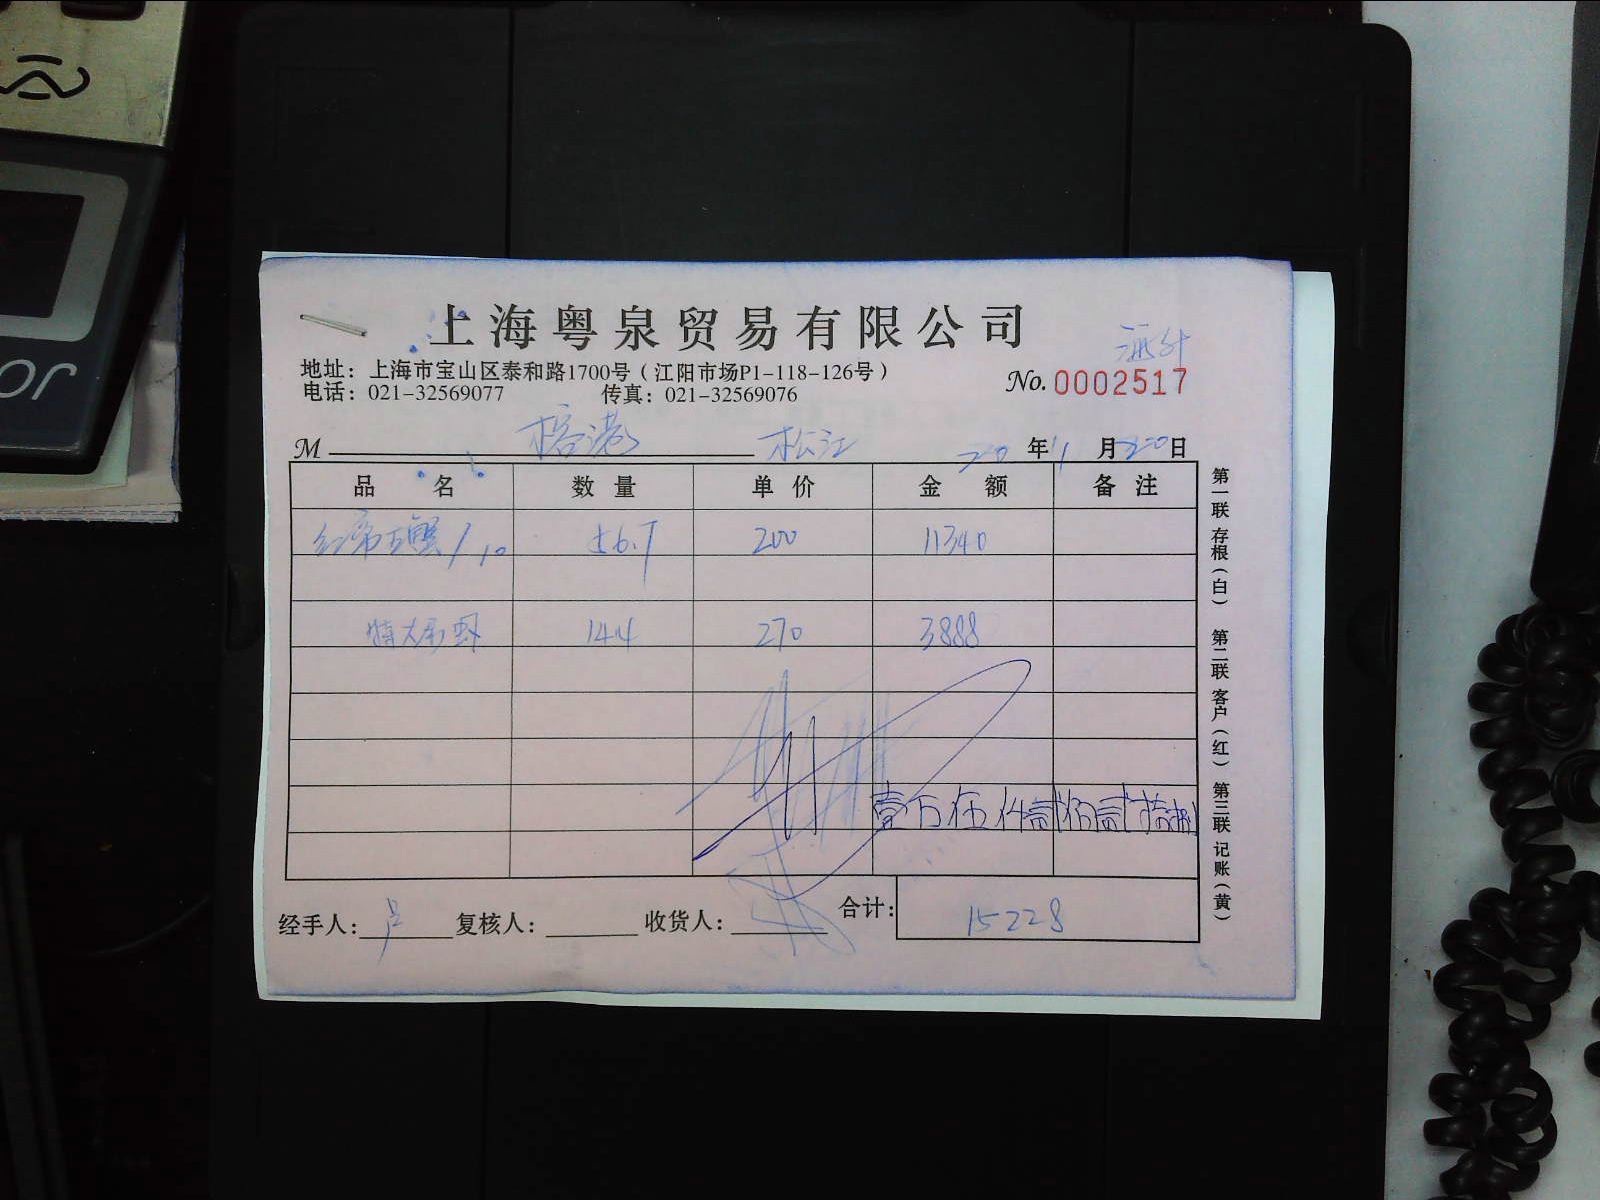 上海粤泉贸易有限公司
地址：上海市宝山区泰和路1700号（江阳市场P1-118-126号）
电话：021-32569077 传真：021-32569076
No. 0002517
M 榕港 松江 20年11月20日
品名 数量 单价 金额 备注
红帝王蟹/10 56.7 200 11340
特大 14.4 270 3888
壹万伍仟贰佰贰拾捌
经手人：卢 复核人： 收货人： 合计：15228
第一联 存根（白） 第二联 客户（红） 第三联 记账（黄）